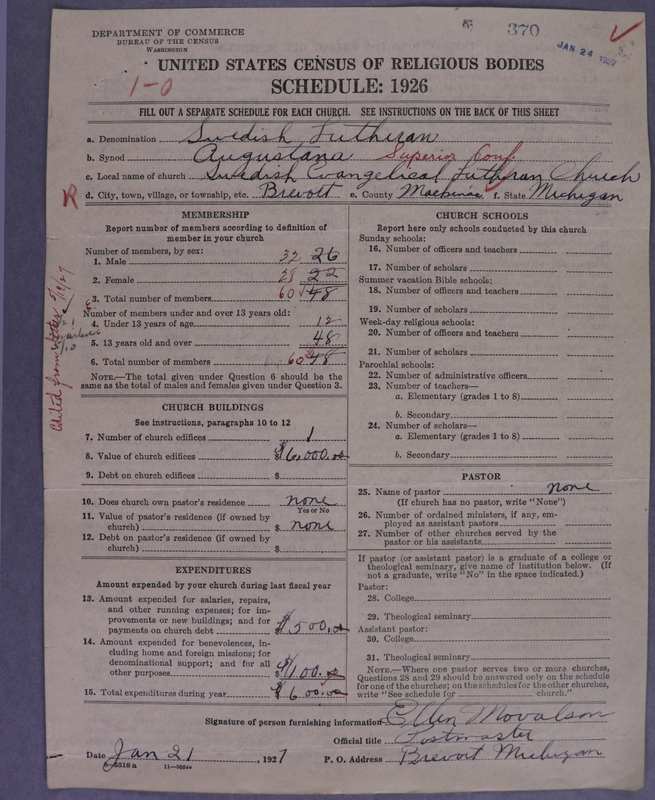 DEPARTMENT OF COMMERCE
BUREAU OF THE CENSUS
WASHINGTON
370
JAN 24 1927
UNITED STATES CENSUS OF RELIGIOUS BODIES
1-0
SCHEDULE: 1926
FILL OUT A SEPARATE SCHEDULE FOR EACH CHURCH. SEE INSTRUCTIONS ON THE BACK OF THIS SHEET
a. Denomination Swedish Lutheran
b. Synod Augustana Superior Conf.
c. Local name of church Swedish Evangelical Lutheran Church
R
d. City, town, village, or township, etc. Brevort e. County Mackinac f. State Michigan
MEMBERSHIP
Report number of members according to definition of
member in your church
Number of members, by sex:
1. Male 32 26
2. Female 28 22
3. Total number of members 60 48
Number of members under and over 13 years old:
4. Under 13 years of age 12
5. 13 years old and over 48
6. Total number of members 60 48
NOTE.—The total given under Question 6 should be the
same as the total of males and females given under Question 3.
CHURCH BUILDINGS
See instructions, paragraphs 10 to 12
7. Number of church edifices 1
8. Value of church edifices $6,000.00
9. Debt on church edifices $
10. Does church own pastor's residence none
Yes or No
11. Value of pastor's residence (if owned by
church) $ none
12. Debt on pastor's residence (if owned by
church) $
EXPENDITURES
Amount expended by your church during last fiscal year
13. Amount expended for salaries, repairs,
and other running expenses; for im-
provements or new buildings; and for
payments on church debt $500.00
14. Amount expended for benevolences, in-
cluding home and foreign missions; for
denominational support; and for all
other purposes $100.00
15. Total expenditures during year $600.00
CHURCH SCHOOLS
Report here only schools conducted by this church
Sunday schools:
16. Number of officers and teachers
17. Number of scholars
Summer vacation Bible schools:
18. Number of officers and teachers
19. Number of scholars
Week-day religious schools:
20. Number of officers and teachers
21. Number of scholars
Parochial schools:
22. Number of administrative officers
23. Number of teachers—
a. Elementary (grades 1 to 8)
b. Secondary
24. Number of scholars—
a. Elementary (grades 1 to 8)
b. Secondary
PASTOR
25. Name of pastor none
(If church has no pastor, write "None")
26. Number of ordained ministers, if any, em-
ployed as assistant pastors
27. Number of other churches served by the
pastor or his assistants
If pastor (or assistant pastor) is a graduate of a college or
theological seminary, give name of institution below. (If
not a graduate, write "No" in the space indicated.)
Pastor:
28. College
29. Theological seminary
Assistant pastor:
30. College
31. Theological seminary
NOTE.—Where one pastor serves two or more churches,
Questions 28 and 29 should be answered only on the schedule
for one of the churches; on the schedules for the other churches,
write "See schedule for church."
Signature of person furnishing information Ellen Movalson
Official title Postmaster
Date Jan 21, 1927 P. O. Address Brevort Michigan